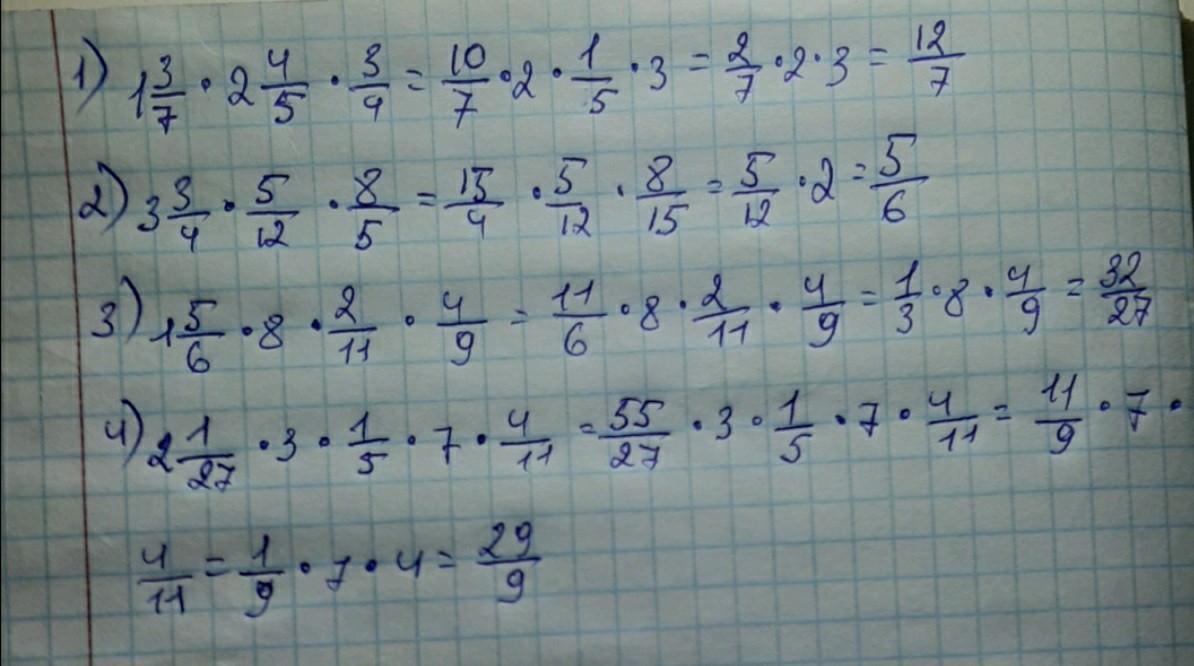 1) 1 3/7 · 2 4/5 · 3/4 = 10/7 · 2 · 1/5 · 3 = 2/7 · 2 · 3 = 12/7
2) 3 3/4 · 5/12 · 8/5 = 15/4 · 5/12 · 8/15 = 5/12 · 2 = 5/6
3) 1 5/6 · 8 · 2/11 · 4/9 = 11/6 · 8 · 2/11 · 4/9 = 1/3 · 8 · 4/9 = 32/27
4) 2 1/27 · 3 · 1/5 · 7 · 4/11 = 55/27 · 3 · 1/5 · 7 · 4/11 = 11/9 · 7 ·
4/11 = 1/9 · 7 · 4 = 29/9